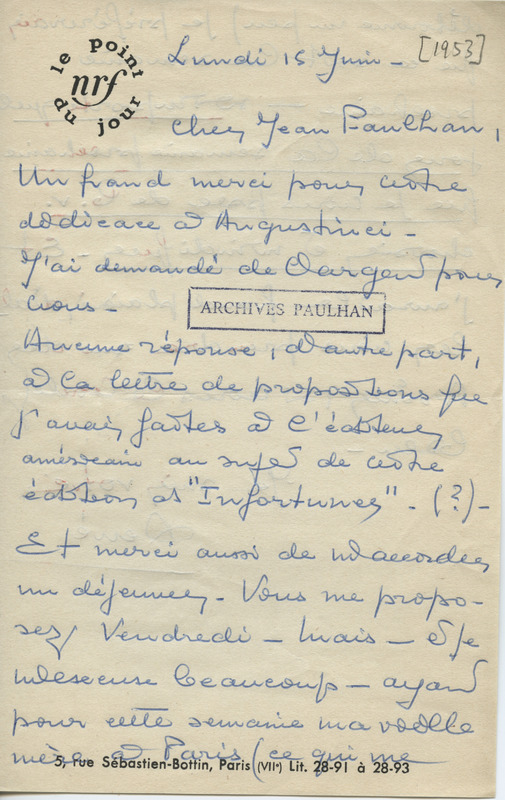 le point
nrf
du jour
Lundi 15 Juin - [1953]
Cher Jean Paulhan,
Un grand merci pour votre
dédicace à Augustinci -
J'ai demandé de l'argent pour
vous -
ARCHIVES PAULHAN
Aucune réponse, d'autre part,
à la lettre de propositions que
j'avais faites à l'éditeur
américain au sujet de votre
édition des "Infortunes" - (?) -
Et merci aussi de m'accorder
un déjeuner - Vous me propo-
sez Vendredi - Mais - et je
m'excuse beaucoup - ayant
pour cette semaine ma vieille
mère à Paris (ce qui me
5, rue Sébastien-Bottin, Paris (VIIe) Lit. 28-91 à 28-93